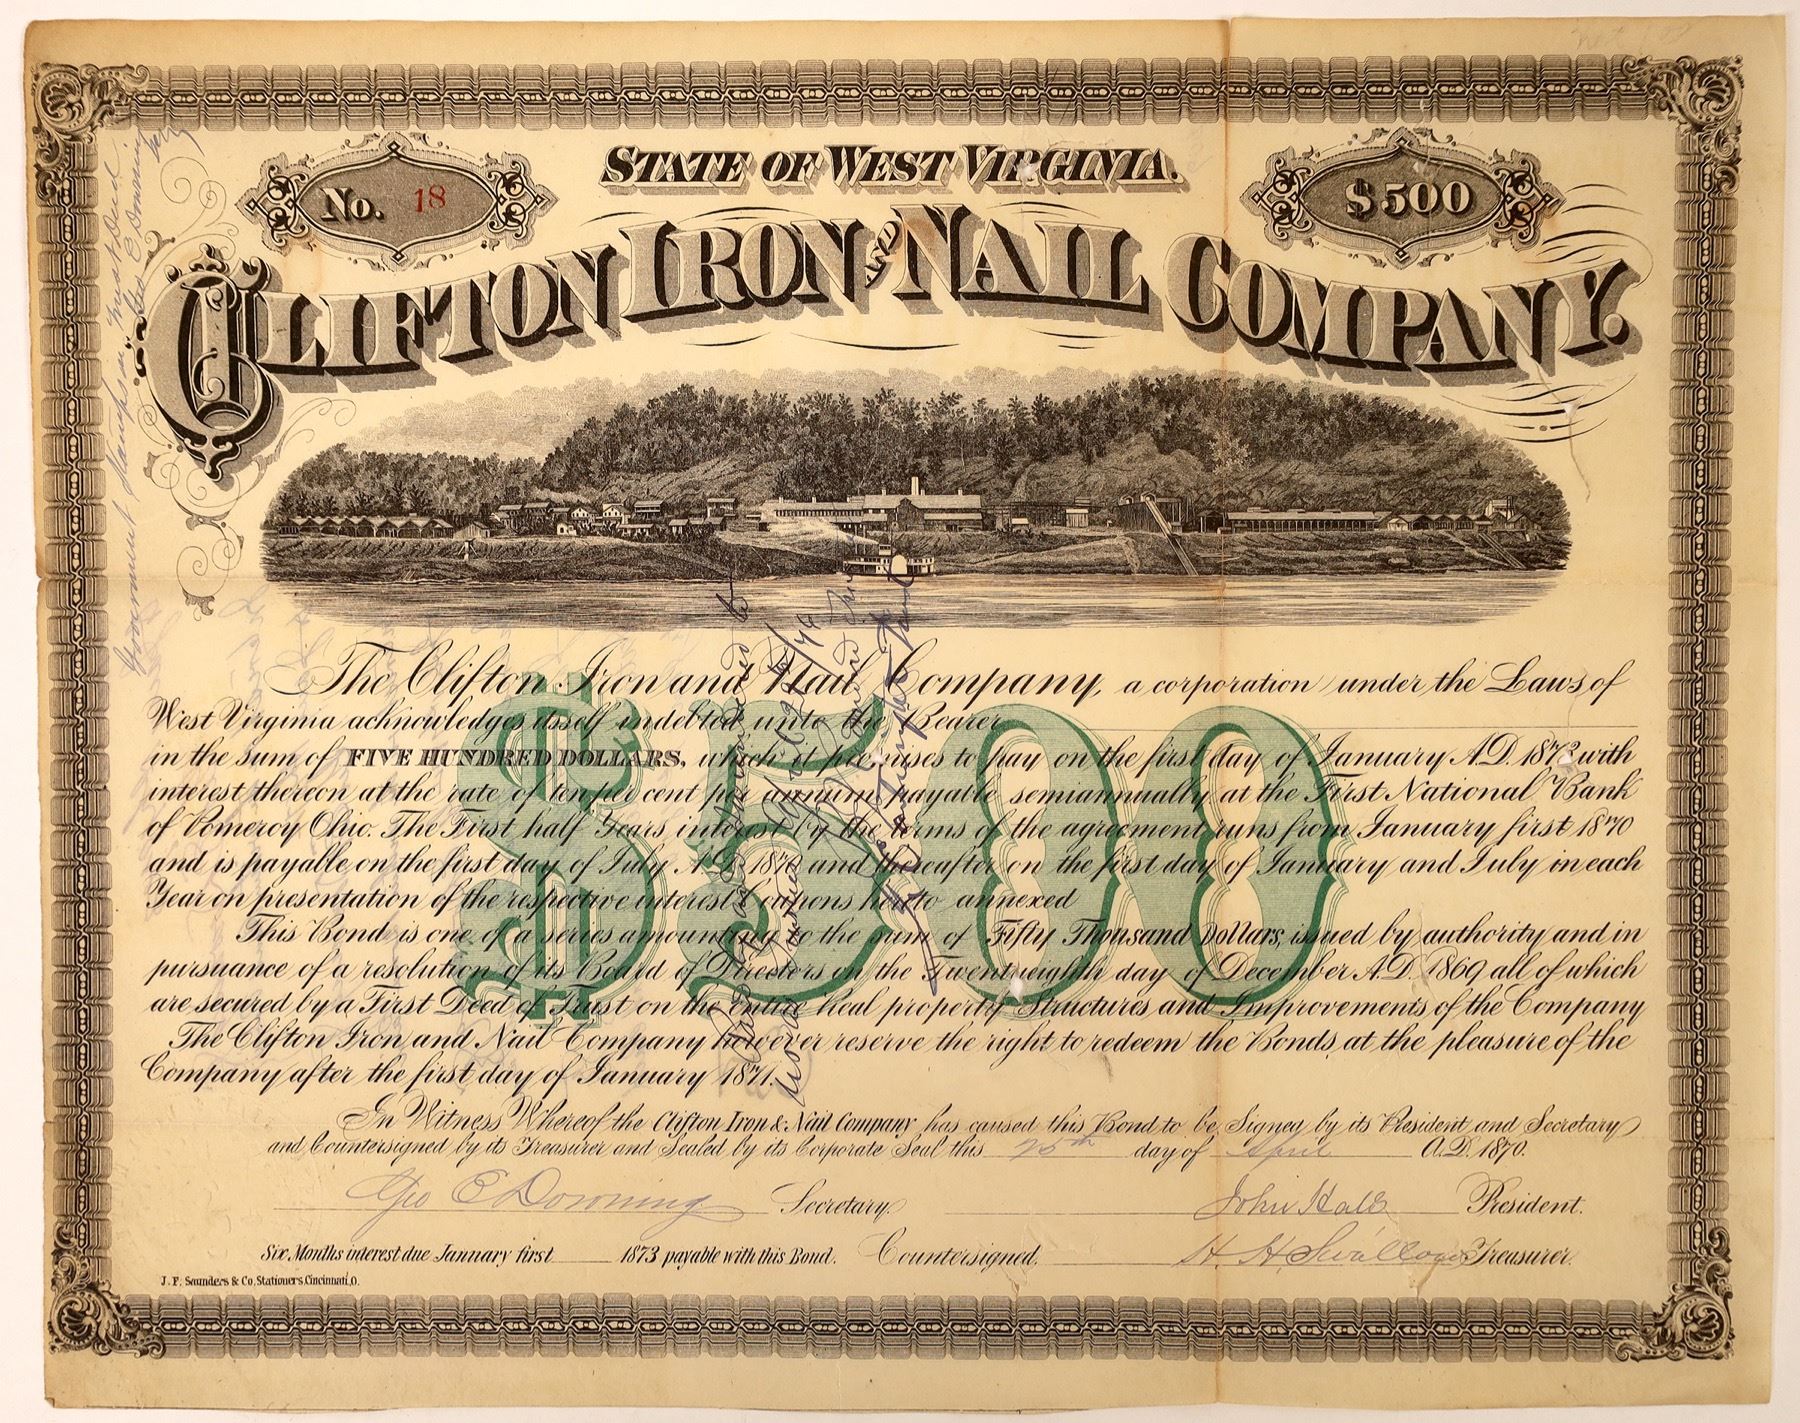 STATE OF WEST VIRGINIA.
No. 18
$500
CLIFTON IRON AND NAIL COMPANY.
Government Stamps on Trust Deed
Geo E Downing
Secy
The Clifton Iron and Nail Company, a corporation under the Laws of
West Virginia acknowledges itself indebted unto the Bearer
in the sum of FIVE HUNDRED DOLLARS, which it promises to pay on the first day of January A.D. 1873 with
interest thereon at the rate of ten per cent per annum payable semiannually at the First National Bank
of Pomeroy Ohio. The First half Years interest by the terms of the agreement runs from January first 1870
and is payable on the first day of July A.D. 1870 and thereafter on the first day of January and July in each
Year on presentation of the respective interest Coupons hereto annexed
This Bond is one of a series amounting to the sum of Fifty Thousand Dollars, issued by authority and in
pursuance of a resolution of its Board of Directors on the Twenty eighth day of December A.D. 1869 all of which
are secured by a First Deed of Trust on the entire Real property Structures and Improvements of the Company
The Clifton Iron and Nail Company however reserve the right to redeem the Bonds, at the pleasure of the
Company after the first day of January 1871.
$500
In Witness Whereof the Clifton Iron & Nail Company has caused this Bond to be Signed by its President and Secretary
and Countersigned by its Treasurer and Sealed by its Corporate Seal this 25th day of April A.D. 1870.
Geo E Downing Secretary.
John Hall President.
Six Months interest due January first 1873 payable with this Bond. Countersigned. H. H. Swallow Treasurer.
J. F. Saunders & Co. Stationers, Cincinnati, O.